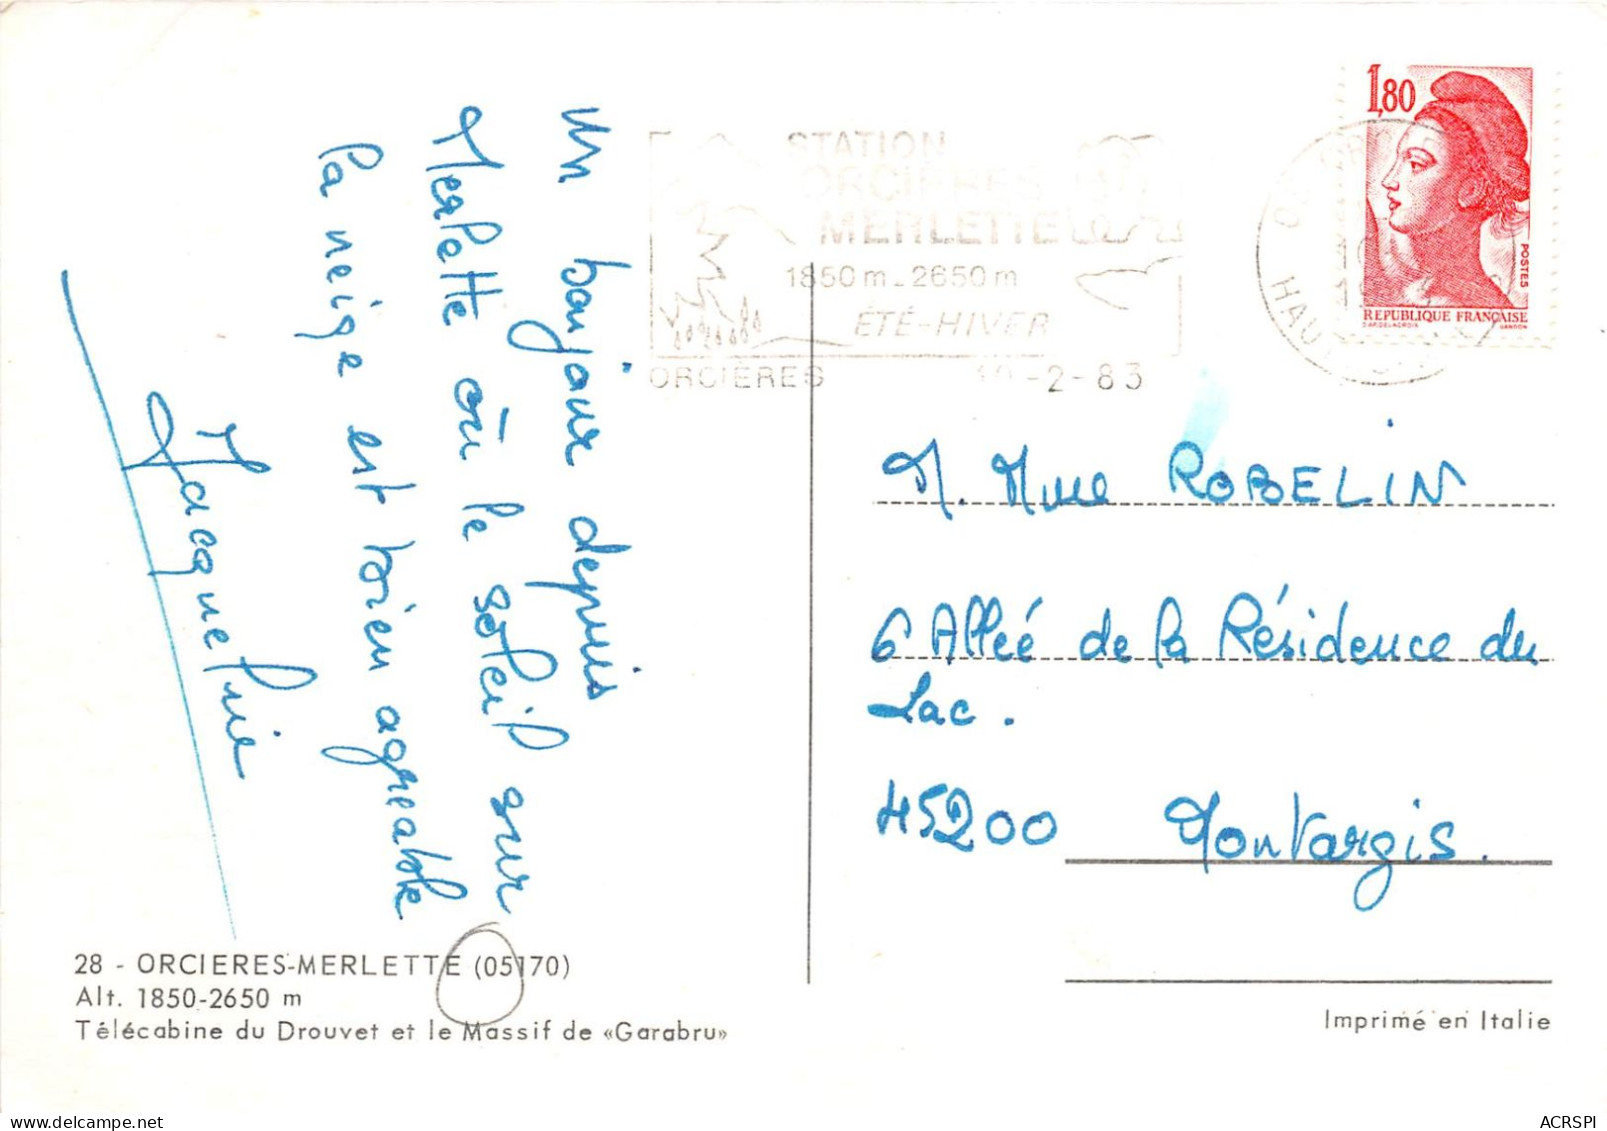 Un bonjour depuis
Merlette où le soleil sur
la neige est bien agreable
Jacqueline
STATION
ORCIERES
MERLETTE
1850 m - 2650 m
ÉTÉ-HIVER
ORCIERES -2-83
1,80
POSTES
REPUBLIQUE FRANÇAISE
D'AP. DELACROIX GANDON
HAUTES
M. Mme ROBELIN
6 Alleé de la Résidence du
Lac.
45200 Montargis.
28 - ORCIERES-MERLETTE (05170)
Alt. 1850-2650 m
Télécabine du Drouvet et le Massif de «Garabru»
Imprimé en Italie
ACRSPI